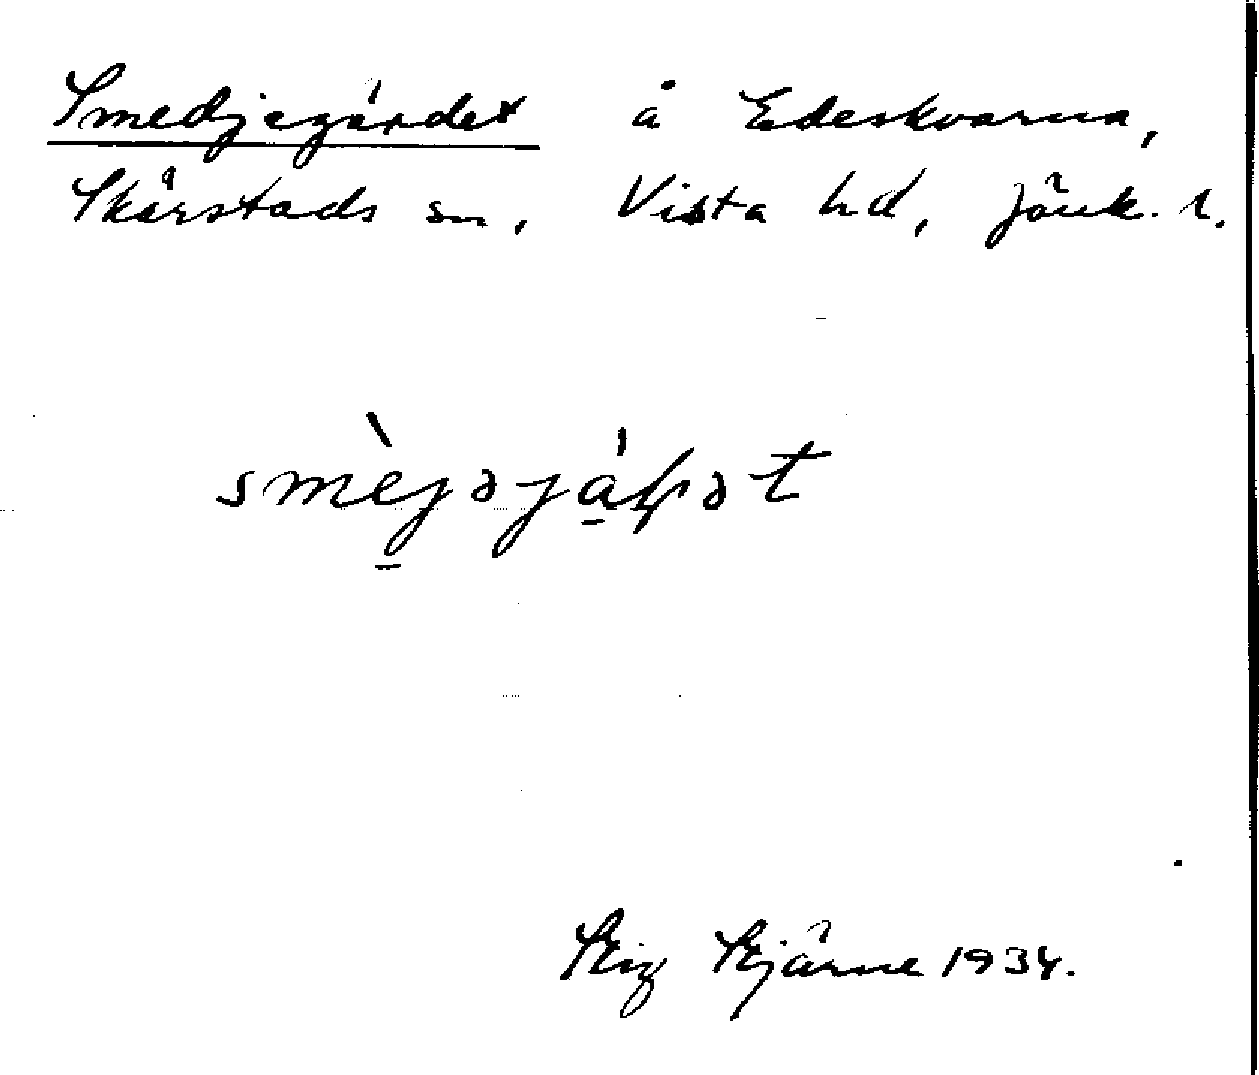 Smedjegärdet å Edeskvarna,
Skärstads sn, Vista hd, Jönk. l.
smèjəjáɖət
Stig Stjärne 1934.